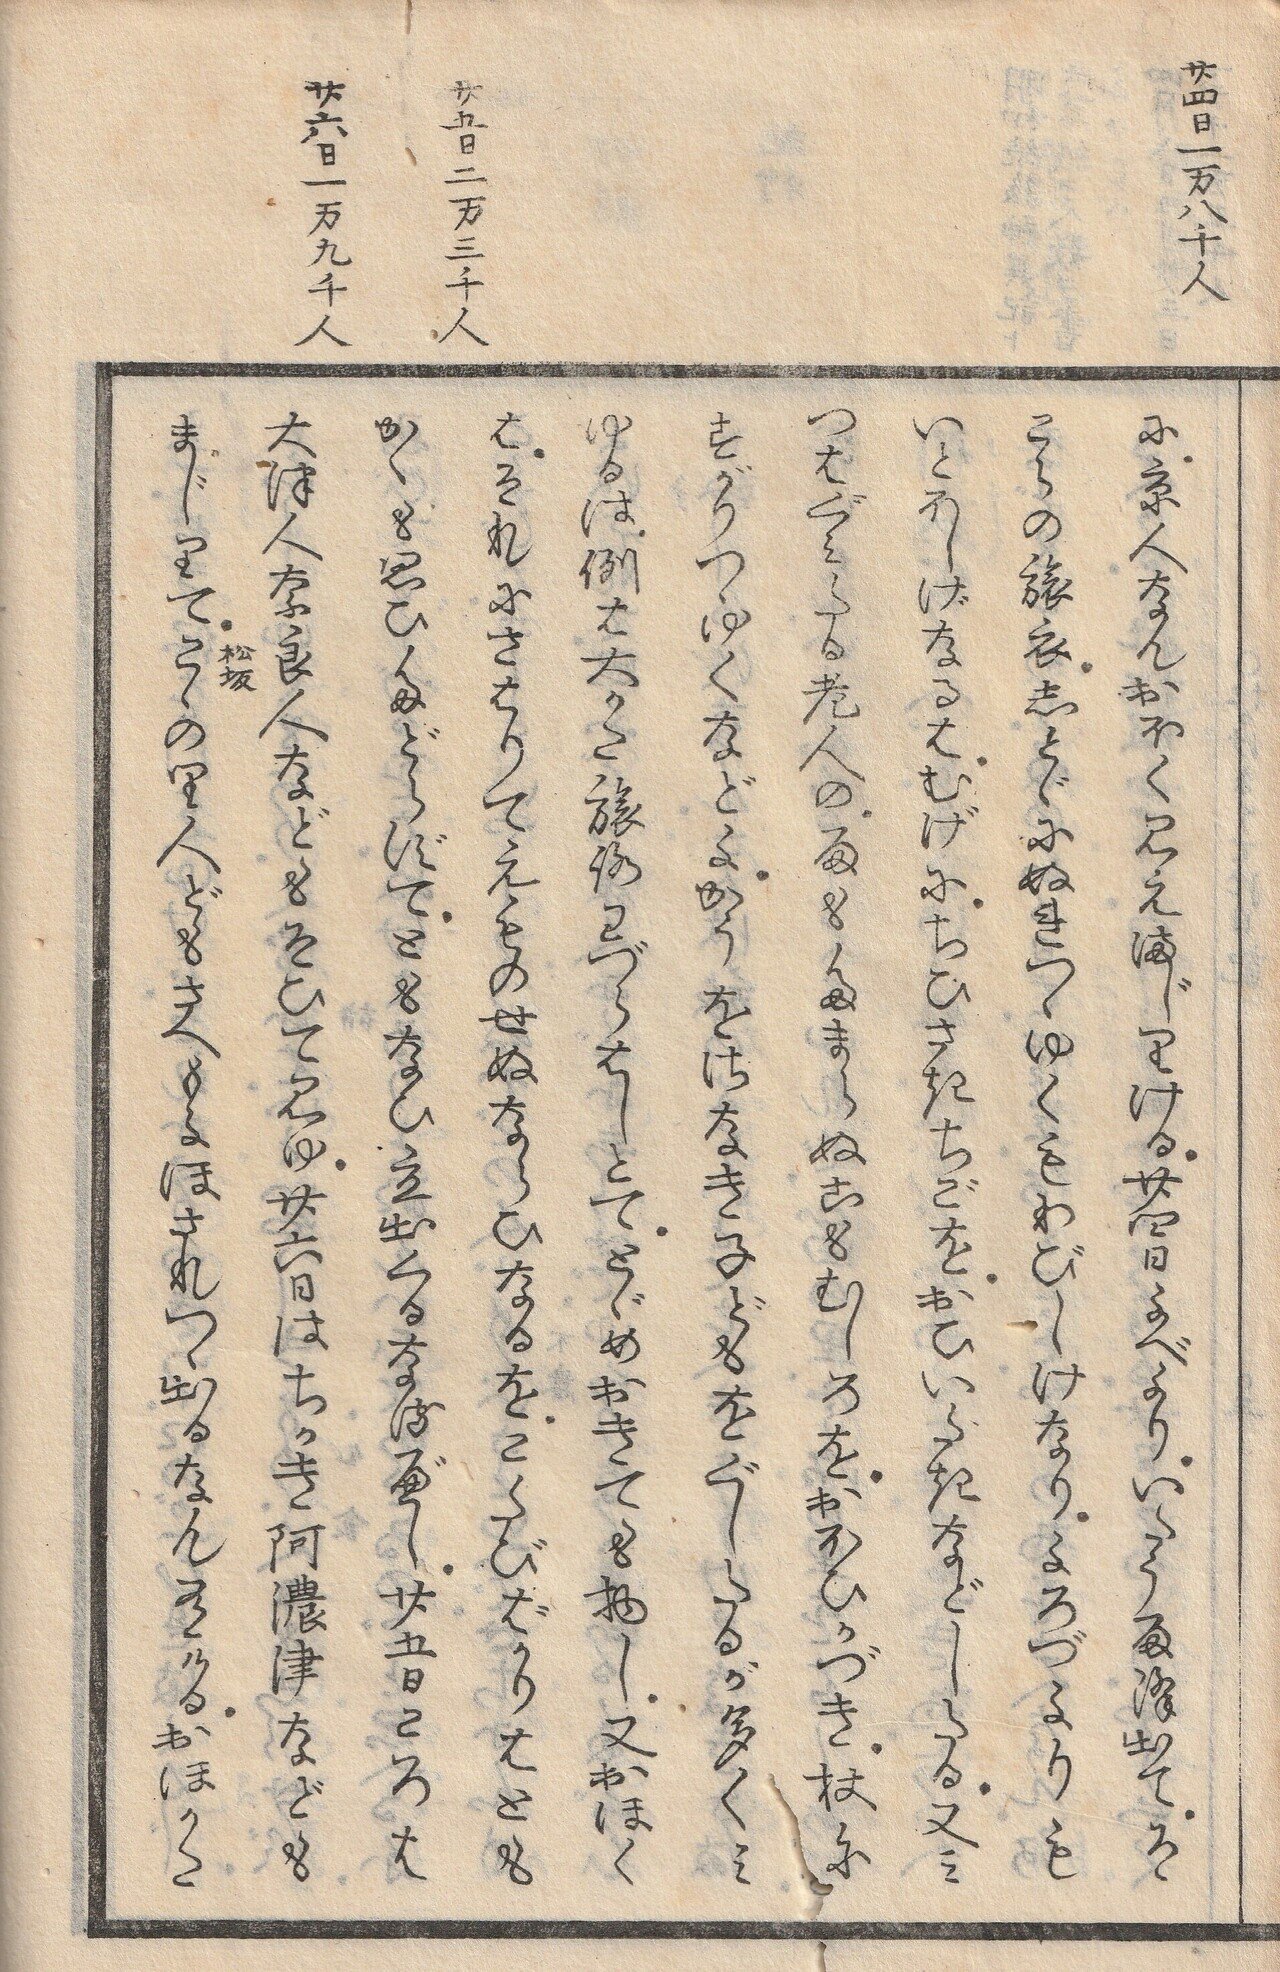 廿四日一万八千人
廿五日二万三千人
廿六日一万九千人
に京人なんおほく見え海じりける廿四日よべよりいたう雨降出てそ
こらの旅衣しとゞにぬれつゝゆくもわびしげなりよろづよりも
いとほしげなるはむげにちひさきちごをおひいだきなどしたる又ミ
つはぐミたる老人の雨もたまらぬこもむしろをおほひかづき杖に
すがりつゝゆくなどよかうをさなき子どもをぐしたるが多くミ
ゆるは例は大かた旅路わづらはしとてとゞめおきても物し又おほく
はそれにさはりてえものせぬならひなるをこたびばかりはとも
かくも思ひたどらずてともなひ立出くるなるべし廿五日ころは
大津人奈良人などもそひて見ゆ廿六日はちかき阿濃津なども
まじりてこゝの里人どもさへもよほされつゝ出るなん有けるおほかた
松坂